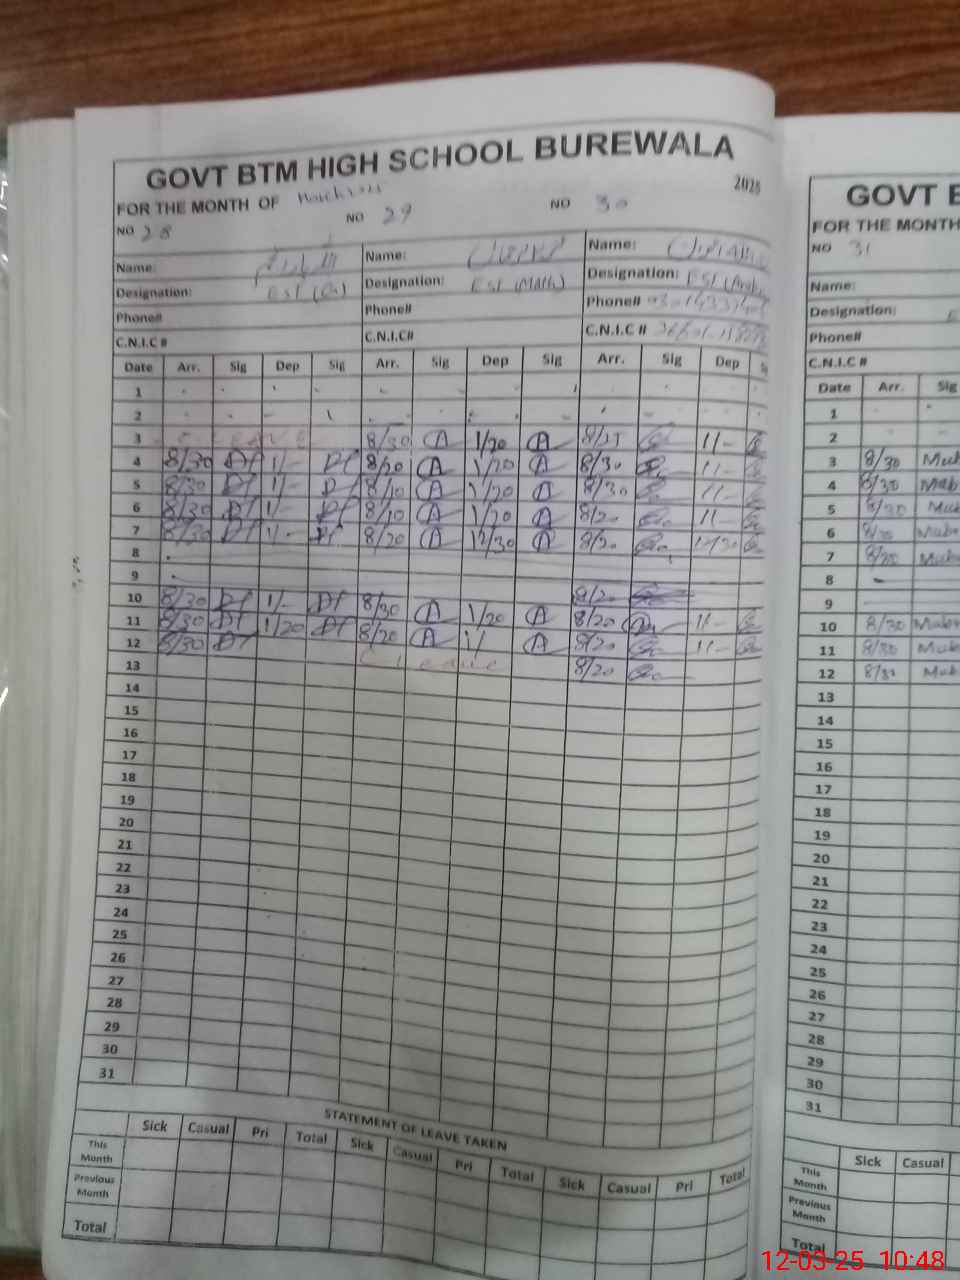 GOVT BTM HIGH SCHOOL BUREWALA
2025
FOR THE MONTH OF March 2025
NO 28 NO 29 NO 30
Name: Name: Name:
Designation: EST (CS) Designation: EST (Math) Designation: EST (Arabic
Phone# Phone# Phone#
C.N.I.C # C.N.I.C# C.N.I.C #
Date Arr. Sig Dep Sig Arr. Sig Dep Sig Arr. Sig Dep
1
2
3 C LEAVE 8/30 A 1/20 A 8/25 11/-
4 8/30 Df 1/- Df 8/20 A 1/20 A 8/30 11/-
5 8/30 Df 1/- Df 8/10 A 1/20 A 8/30 11/-
6 8/30 Df 1/- Df 8/10 A 1/20 A 8/20 11/-
7 8/30 Df 1/- Df 8/20 A 12/30 A 8/20 12/30
8
9
10 8/30 Df 1/- Df 8/30 A 1/20 A 8/20
11 8/30 Df 1/20 Df 8/20 A 1/ A 8/20 11/-
12 8/30 Df C leave 8/20 11/-
13 8/20
14
15
16
17
18
19
20
21
22
23
24
25
26
27
28
29
30
31
STATEMENT OF LEAVE TAKEN
Sick Casual Pri Total Sick Casual Pri Total Sick Casual Pri Total
This Month
Previous Month
Total
GOVT B
FOR THE MONTH
NO 31
Name:
Designation: E
Phone#
C.N.I.C #
Date Arr. Sig
1
2
3 8/30 Mub
4 8/30 Mub
5 8/30 Mub
6 8/30 Mub
7 8/20 Mub
8
9
10 8/30 Mub
11 8/30 Mub
12 8/31 Mub
13
14
15
16
17
18
19
20
21
22
23
24
25
26
27
28
29
30
31
Sick Casual
This Month
Previous Month
Total
12-03-25 10:48